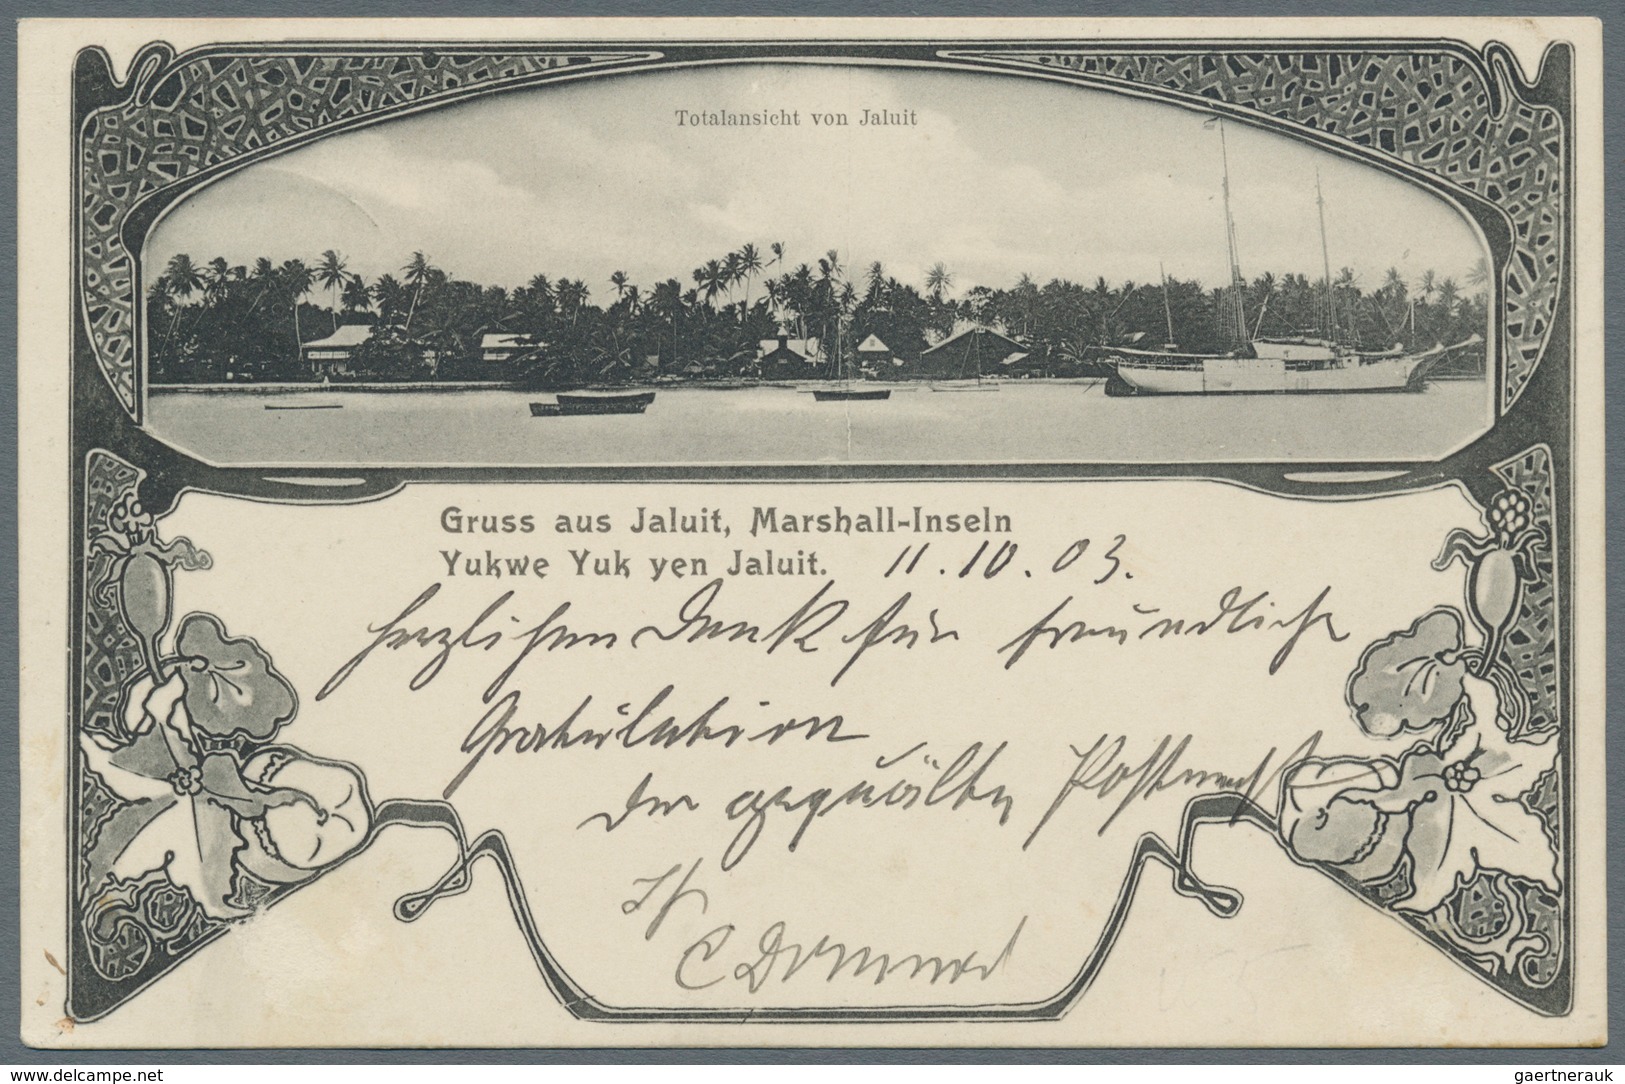 Totalansicht von Jaluit
Gruss aus Jaluit, Marshall-Inseln
Yukwe Yuk yen Jaluit. 11.10.03.
Herzlichen Dank für freundliche
Gratulation
Der gequälte
C
delcampe.net
gaertnerauk